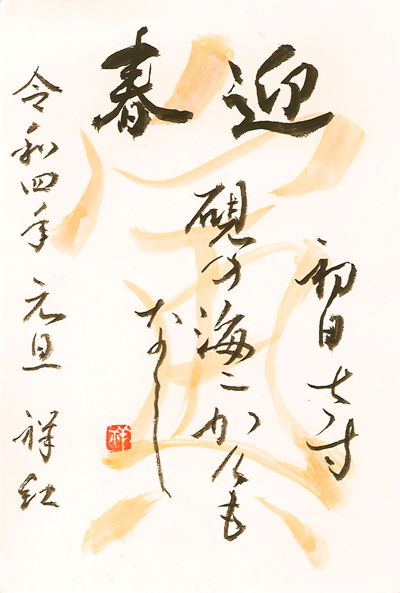 迎春
初日さす
硯の海に
なし
令和四年 元旦 祥紅
祥
寅